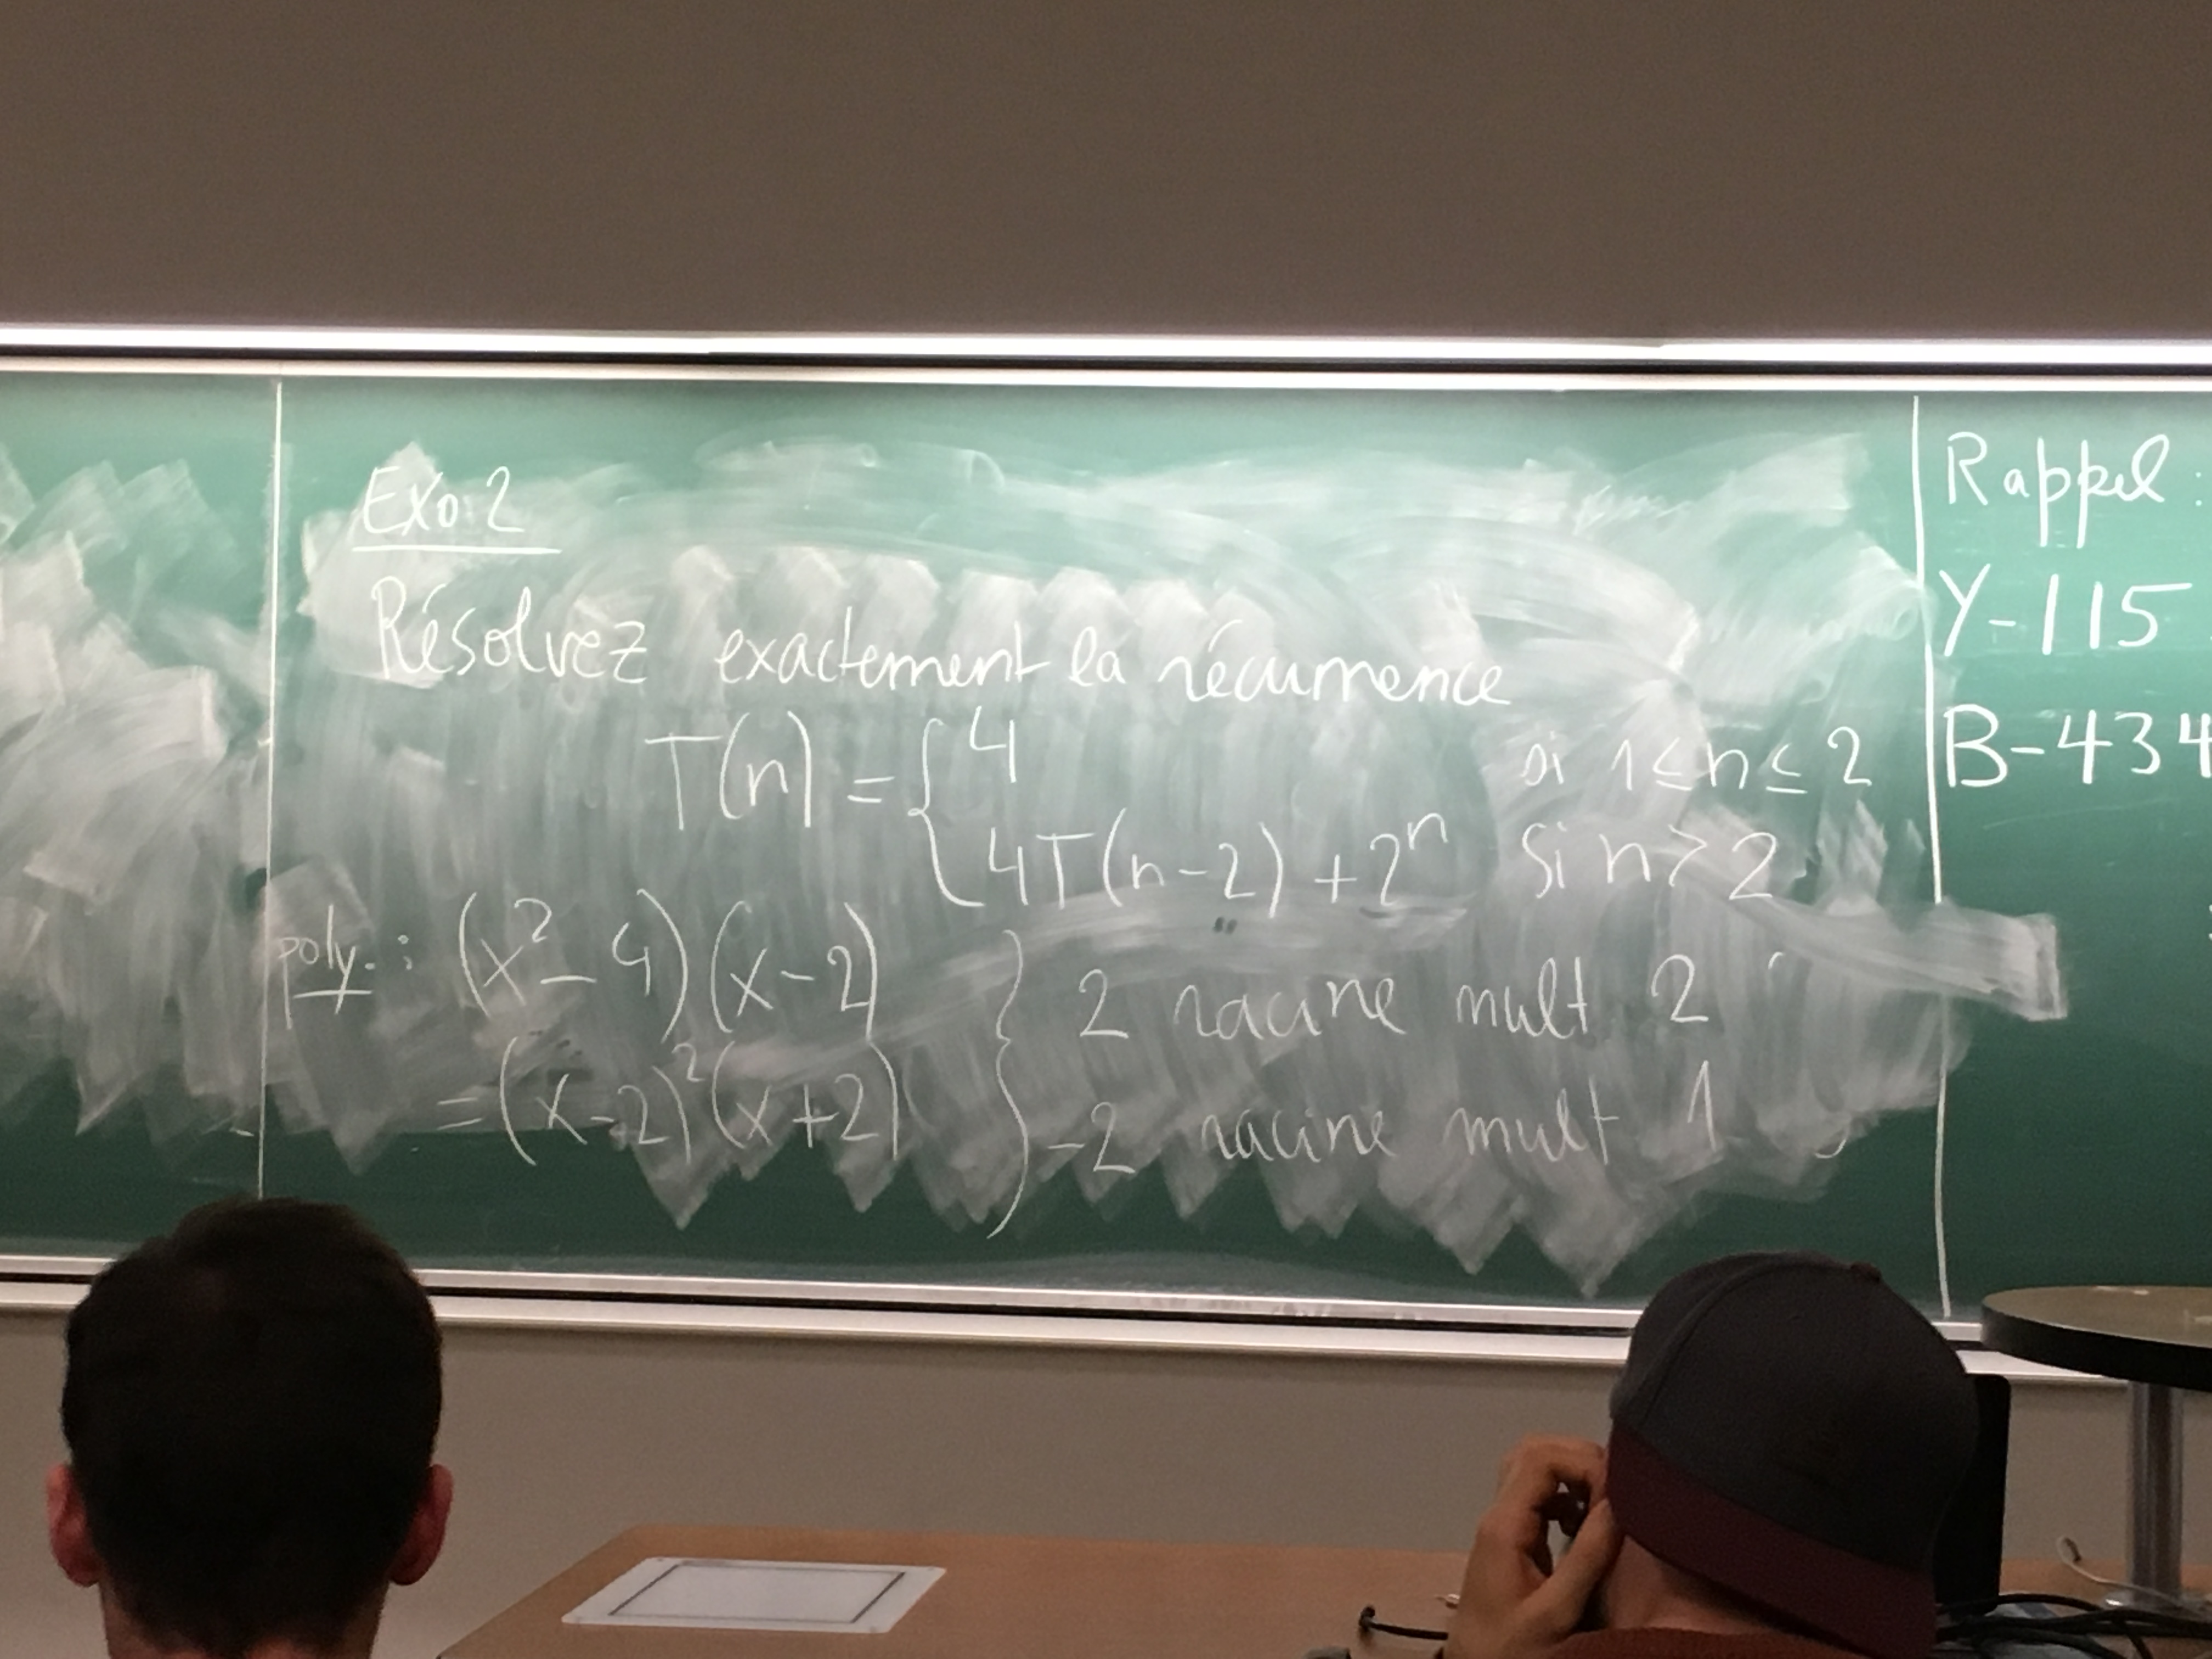 Exo 2
Résolvez exactement la récurrence
T(n) = { 4 si 1 ≤ n ≤ 2
4T(n-2) + 2^n si n > 2
poly. : (x^2 - 4)(x - 2) } 2 racine mult 2
= (x-2)^2 (x+2) -2 racine mult 1
Rappel :
Y-115
B-434